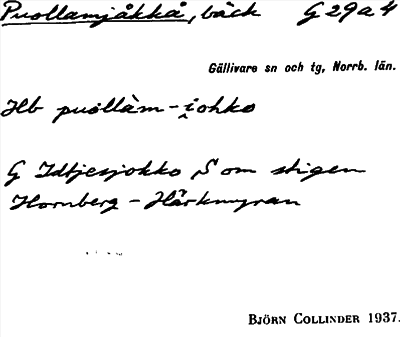 Puollamjåkkå, bäck G 29 a 4
Gällivare sn och tg, Norrb. län.
Hb puöllàm-i̯ohko
G Idtjesjokko, S om stigen
Hornberg - Härkmyran
BJÖRN COLLINDER 1937.